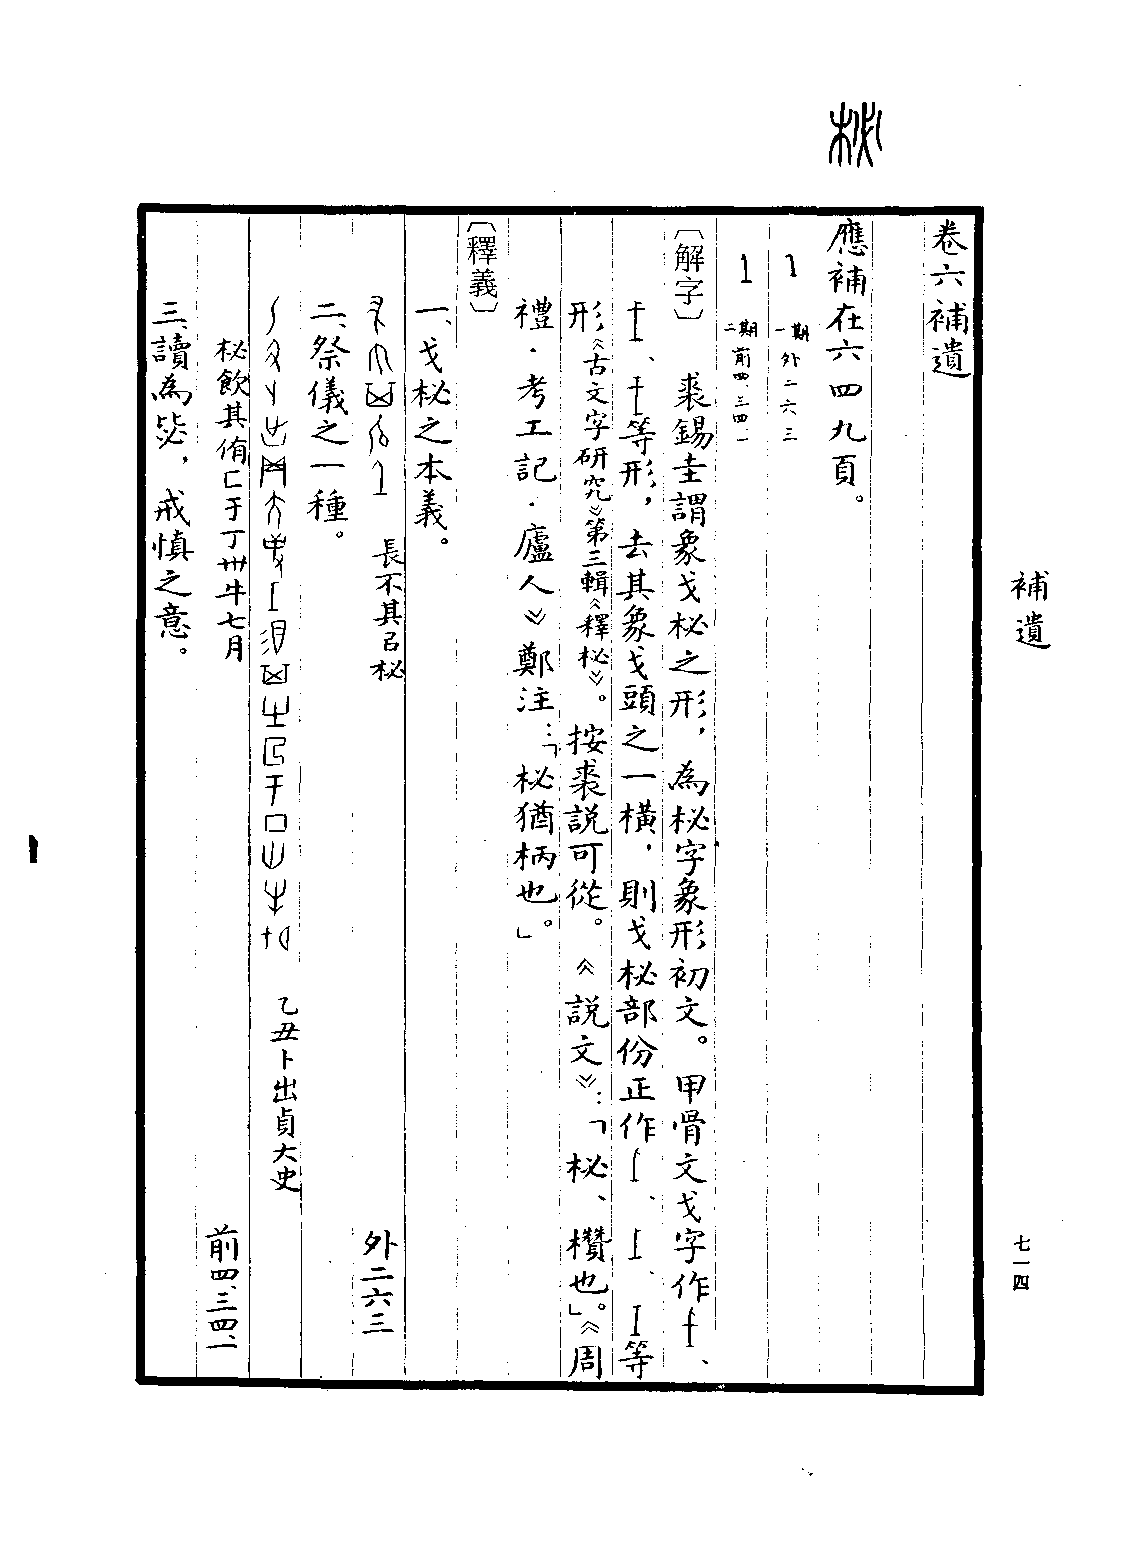 柲
補遺
七一四
卷六補遺
應補在六四九頁。
一期外二六三
二期前四.三四.一
〔解字〕 裘錫圭謂象戈柲之形，為柲字象形初文。甲骨文戈字作、
、等形，去其象戈頭之一橫，則戈柲部份正作、、等
形《古文字研究》第三輯《釋柲》。按裘說可從。《說文》：「柲、欑也。」《周
禮．考工記．廬人》鄭注：「柲猶柄也。」
〔釋義〕
一、戈柲之本義。
長不其㠯柲 外二六三
二、祭儀之一種。
乙丑卜出貞大史
柲飲其侑匚于丁卅牛七月 前四.三四.一
三、讀為毖，戒慎之意。